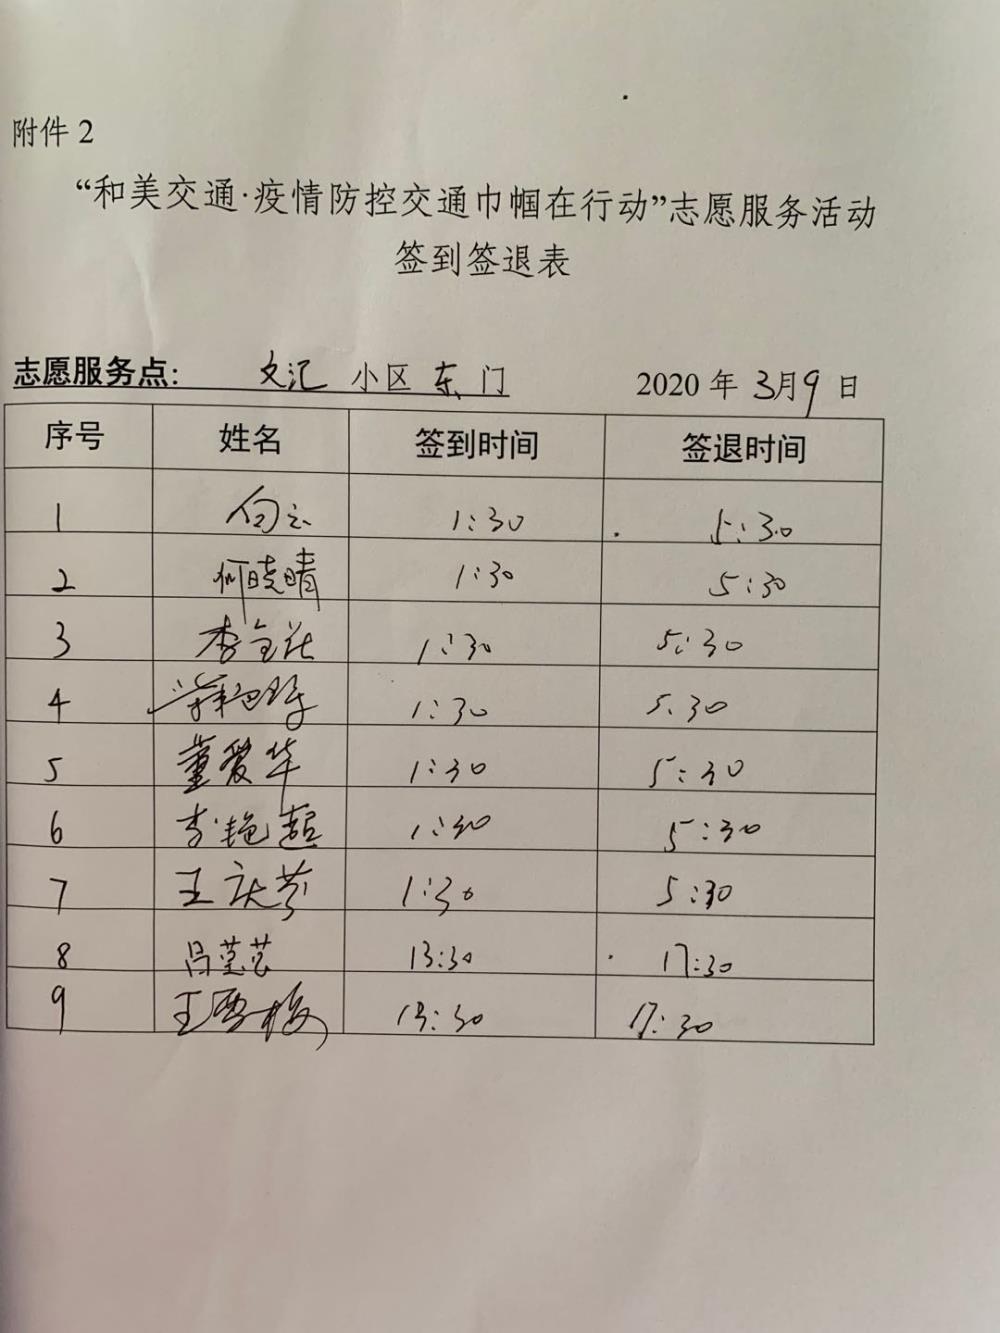 附件 2
“和美交通·疫情防控交通巾帼在行动”志愿服务活动
签到签退表
志愿服务点： 文汇 小区 东 门 2020 年 3月9 日
序号 姓名 签到时间 签退时间
1 白云 1:30 5:30
2 何晓晴 1:30 5:30
3 李 1:30 5:30
4 1:30 5:30
5 董爱华 1:30 5:30
6 李艳超 1:30 5:30
7 王庆芬 1:30 5:30
8 吕莹莹 13:30 17:30
9 王雪梅 13:30 17:30